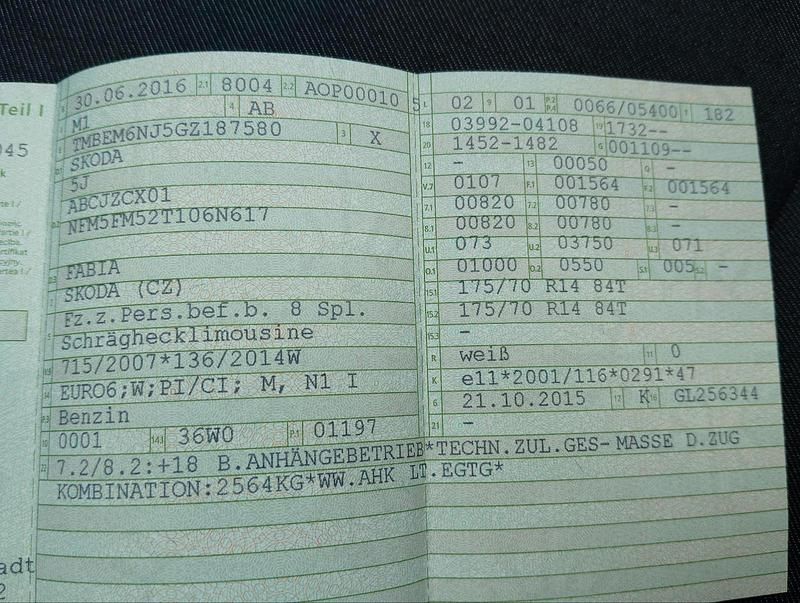 Teil I
045
adt
2
30.06.2016 2.1 8004 2.2 AOP00010 5
M1 4 AB
TMBEM6NJ5GZ187580 3 X
SKODA
5J
ABCJZCX01
NFM5FM52T106N617
FABIA
SKODA (CZ)
Fz.z.Pers.bef.b. 8 Spl.
Schräghecklimousine
715/2007*136/2014W
EURO6;W;PI/CI; M, N1 I
Benzin
0001 14.1 36W0 P.1 01197
L 02 9 01 P.2 P.4 0066/05400 T 182
18 03992-04108 19 1732--
20 1452-1482 G 001109--
12 - 13 00050 Q -
V.7 0107 F.1 001564 F.2 001564
7.1 00820 7.2 00780 7.3 -
8.1 00820 8.2 00780 8.3 -
U.1 073 U.2 03750 U.3 071
O.1 01000 O.2 0550 S.1 005 S.2 -
15.1 175/70 R14 84T
15.2 175/70 R14 84T
15.3 -
R weiß 11 0
K e11*2001/116*0291*47
6 21.10.2015 17 K 16 GL256344
21 -
22 7.2/8.2:+18 B.ANHÄNGEBETRIEB*TECHN.ZUL.GES-MASSE D.ZUG
KOMBINATION:2564KG*WW.AHK LT.EGTG*